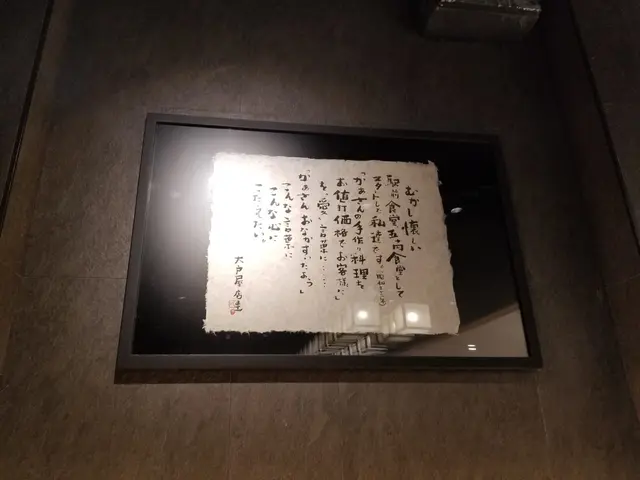 むかし懐しい
駅前食堂五十円食堂として
スタートした私達です。(昭和三三年)
「かあさんの手作り料理を
お値打価格でお客様に」
を、愛い言葉に……
「かあさん おなかすいたよっ」
こんな言葉に
こんな心に
こたえたい。
大戸屋 店主